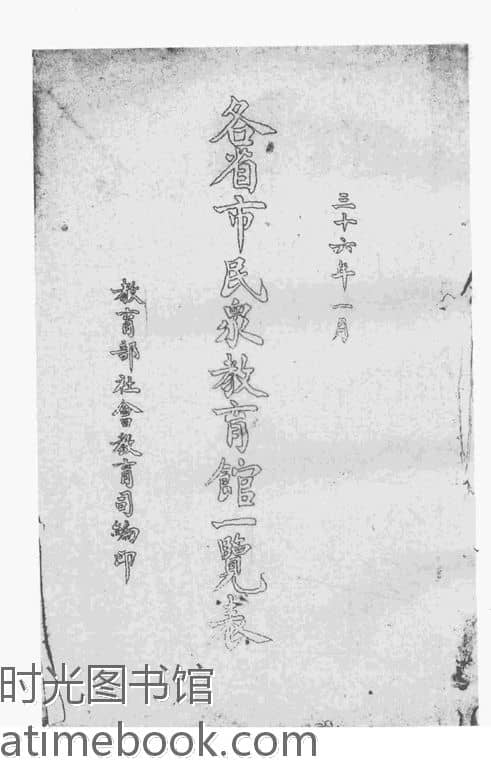 三十六年一月
各省市民眾教育館一覽表
教育部社會教育司編印
时光图书馆
atimebook.com